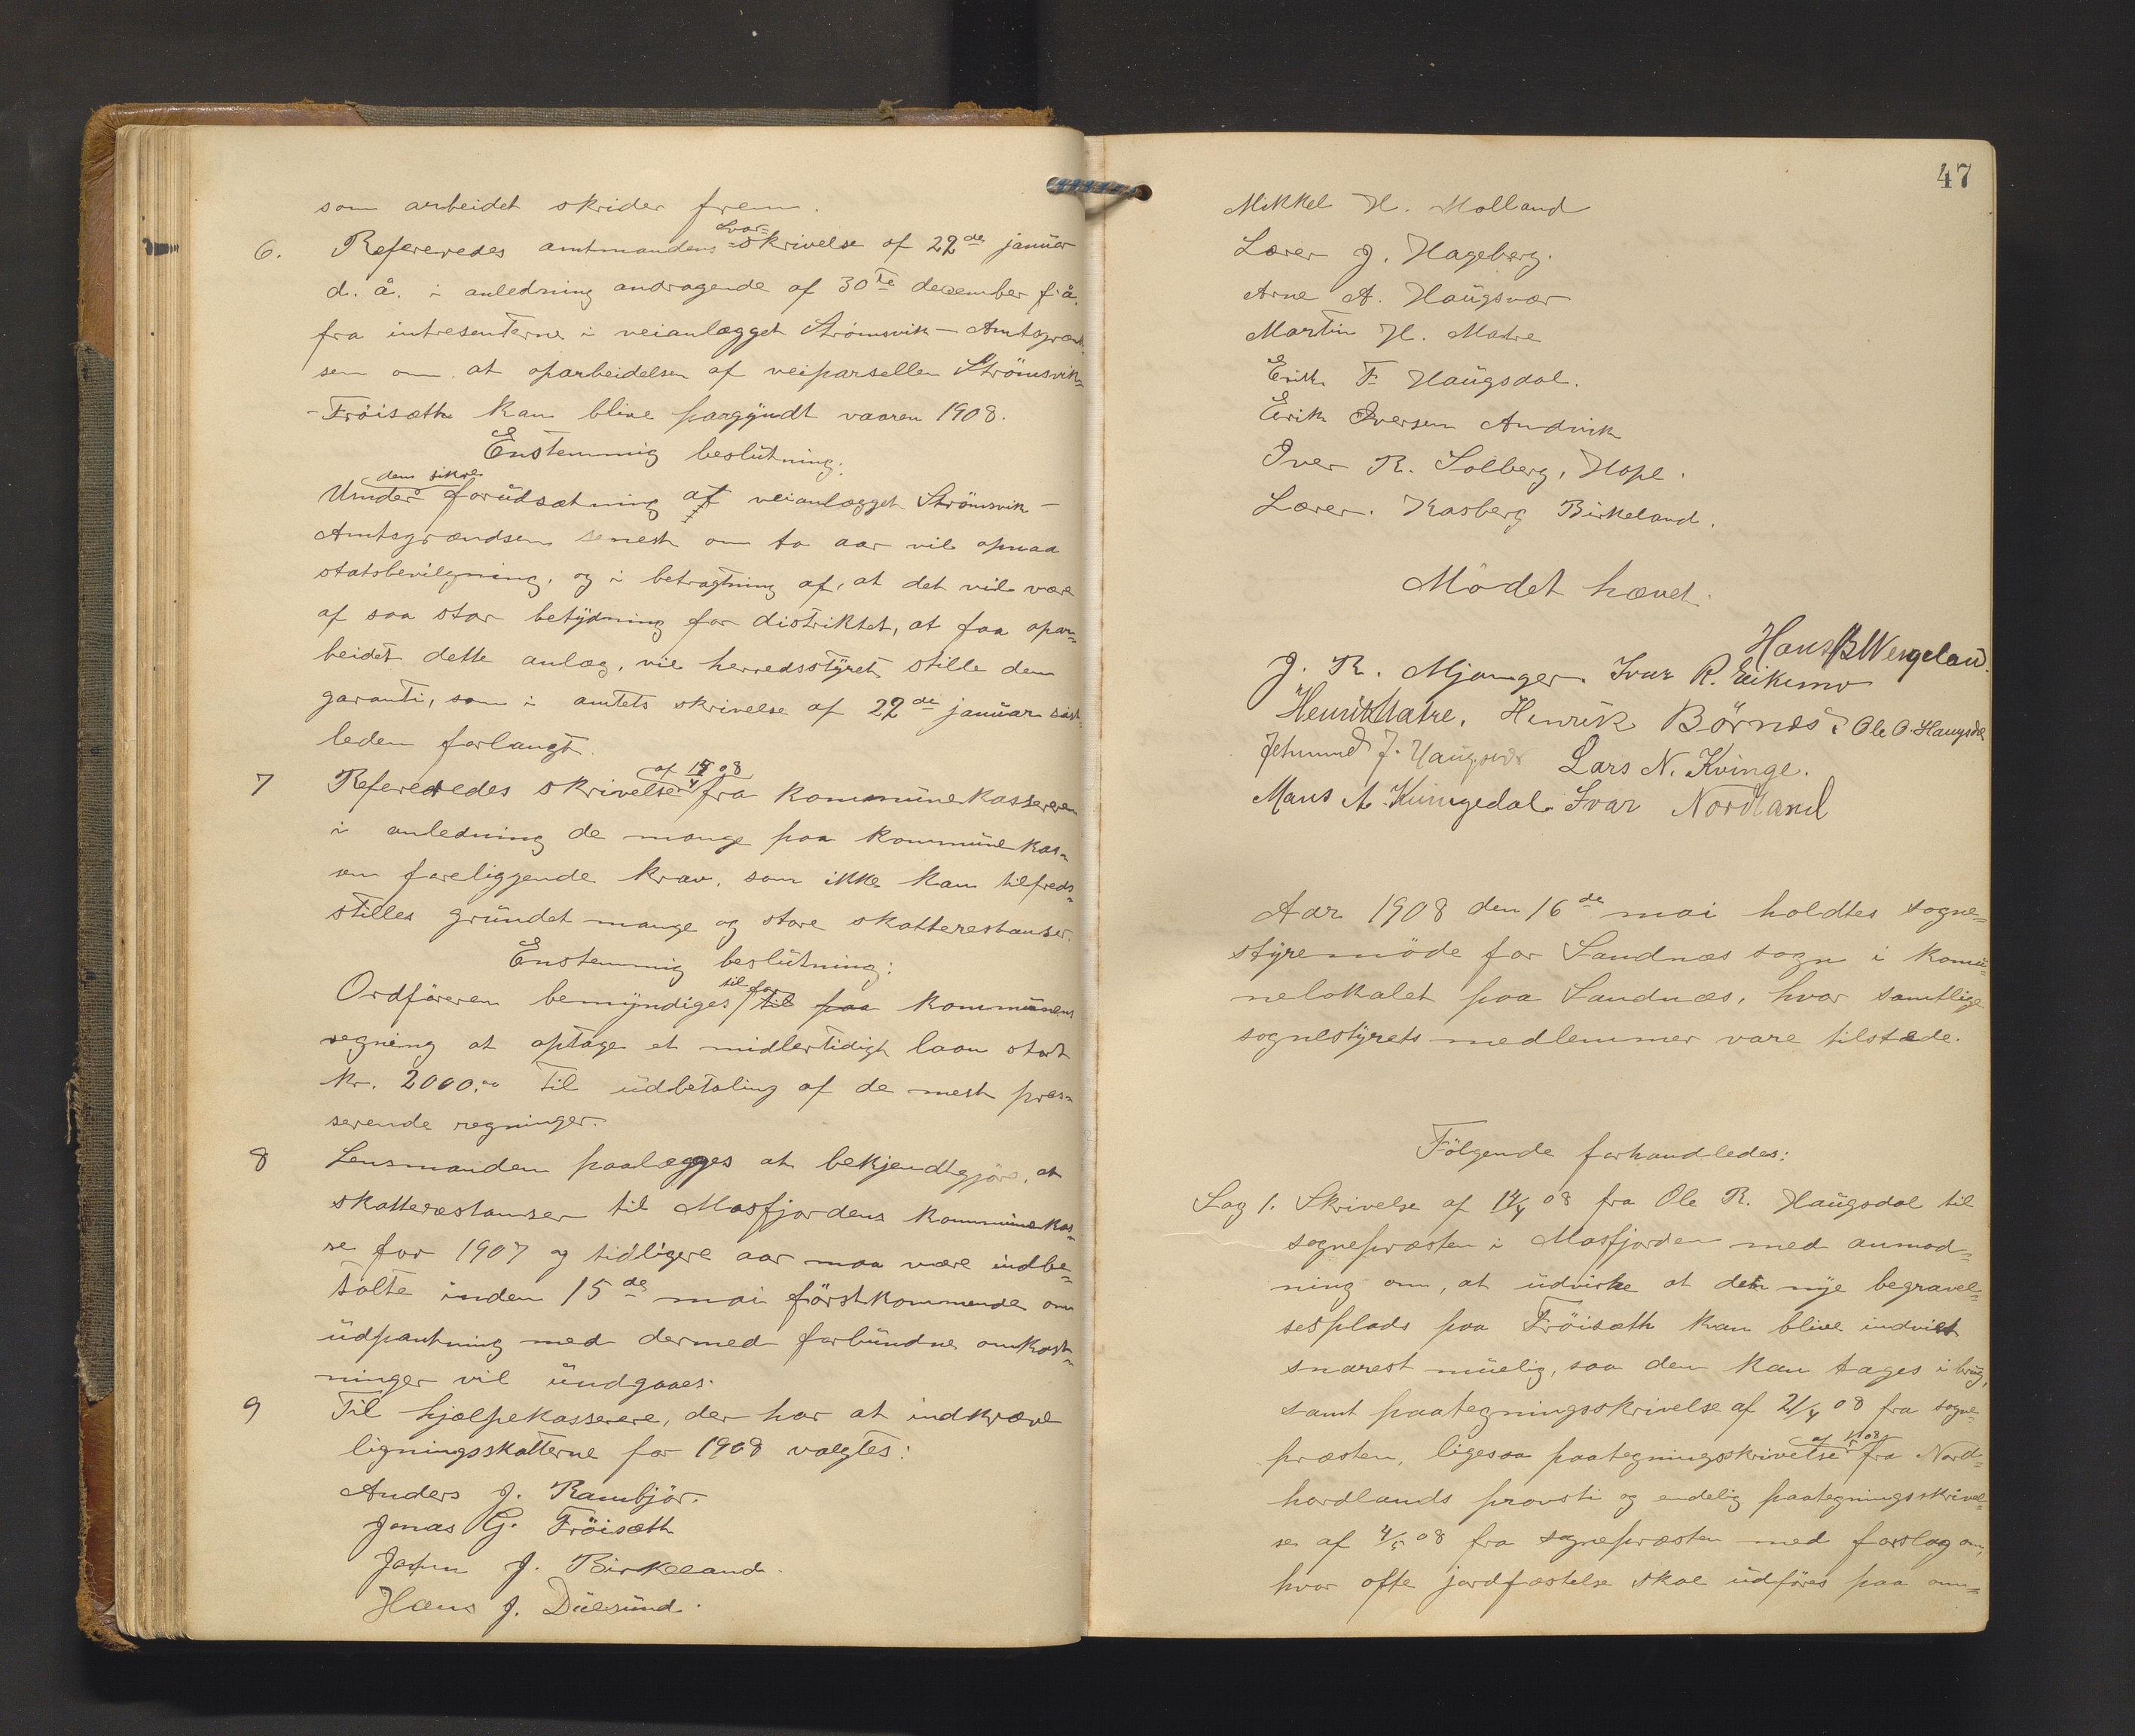 som arbeidet skrider frem.
6. Refereredes amtmandens svar-skrivelse af 22de januar
d. å. i anledning andragende af 30te december f. å.
fra intresenterne i veianlægget Strömsvik - Amtsgrænd-
sen om at oparbeidelsen af veiparsellen Strömsvik-
-Fröisæth kan blive paagyndt vaaren 1908.
Enstemmig beslutning:
Under den sikre forudsætning at veianlægget Strömsvik -
Amtsgrændsen senest om to aar vil opnaa
statsbevilgning, og i betragtning af, at det vil være
af saa stor betydning for distriktet, at faa opar-
beidet dette anlæg, vil herredsstyret stille den
garanti, som i amtets skrivelse af 22de januar sidst-
leden forlangt.
7 Refereredes skrivelse af 15/4 08 fra kommunekassereren
i anledning de mange paa kommunekas-
sen foreliggende krav, som ikke kan tilfreds-
stilles grundet mange og store skatterestanser.
Enstemmig beslutning:
Ordföreren bemyndiges til for til paa kommunens
regning at optage et midlertidigt laan stort
kr. 2000.00 til udbetaling af de mest pres-
serende regninger.
8 Lensmanden paalægges at bekjendtgjöre, at
skatterestanser til Masfjordens kommunekas-
se for 1907 og tidligere aar maa være indbe-
talte inden 15de mai förstkommende om
udpantning med dermed forbundne omkost-
ninger vil undgaaes.
9 Til hjælpekasserere, der har at indkræve
ligningsskatterne for 1908 valgtes:
Anders J. Rambjör.
Jonas G. Fröisæth
John J. Birkeland.
Hans J. Duesund.
47
Mikkel H. Molland
Lærer J. Hageberg.
Arne A. Haugsvær
Martin H. Matre
Erik F. Haugsdal.
Eirik Iversen Andvik
Iver R. Solberg, Hope.
Lærer Kasberg Birkeland.
Mödet hævet.
Hans B Wergeland.
J. R. Mjanger. Ivar R. Eikemo
Henrik Matre. Henrik Börnes. Ole O. Haugsdal
J. Haugsvær Lars N. Kvinge.
Mons A. Kvingedal. Ivar Nordland
Aar 1908 den 16de mai holdtes sogne-
styremöde for Sandnæs sogn i komu-
nelokalet paa Sandnæs, hvor samtlige
sognestyrets medlemmer vare tilstede.
Fölgende forhandledes:
Sag 1. Skrivelse af 14/4 08 fra Ole R. Haugsdal til
sognepræsten i Masfjorden med anmod-
ning om, at udvirke at den nye begravel-
sesplads paa Fröisæth kan blive indviet
snarest muelig, saa den kan tages i brug,
samt paategningsskrivelse af 21/4 08 fra sogne-
præsten, ligesaa paategningsskrivelse af 1/5 08 fra Nord-
hordlands provsti og endelig paategningsskrivel-
se af 4/5 08 fra sognepræsten med forslag om,
hvor ofte jordfæstelse skal udföres paa om-